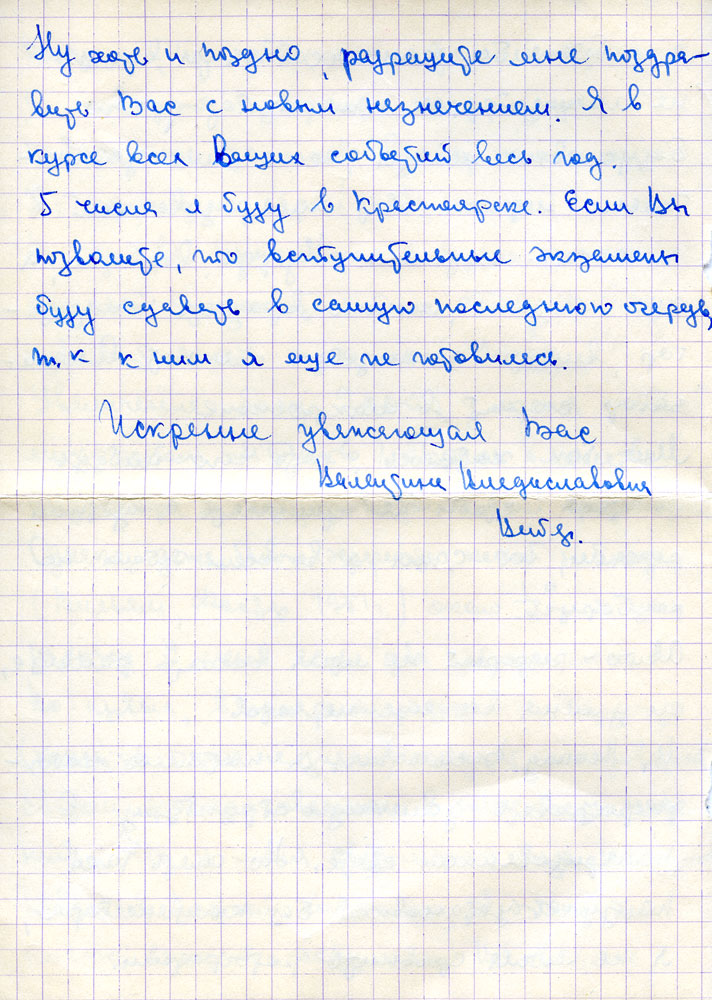 Ну хоть и поздно, разрешите мне поздра-
вить Вас с новым назначением. Я в
курсе всех Ваших событий весь год.
5 числа я буду в Красноярске. Если Вы
позволите, то вступительные экзамены
буду сдавать в самую последнюю очередь,
т.к к ним я еще не готовилась.
Искренне уважающая Вас
Валентина Владиславовна